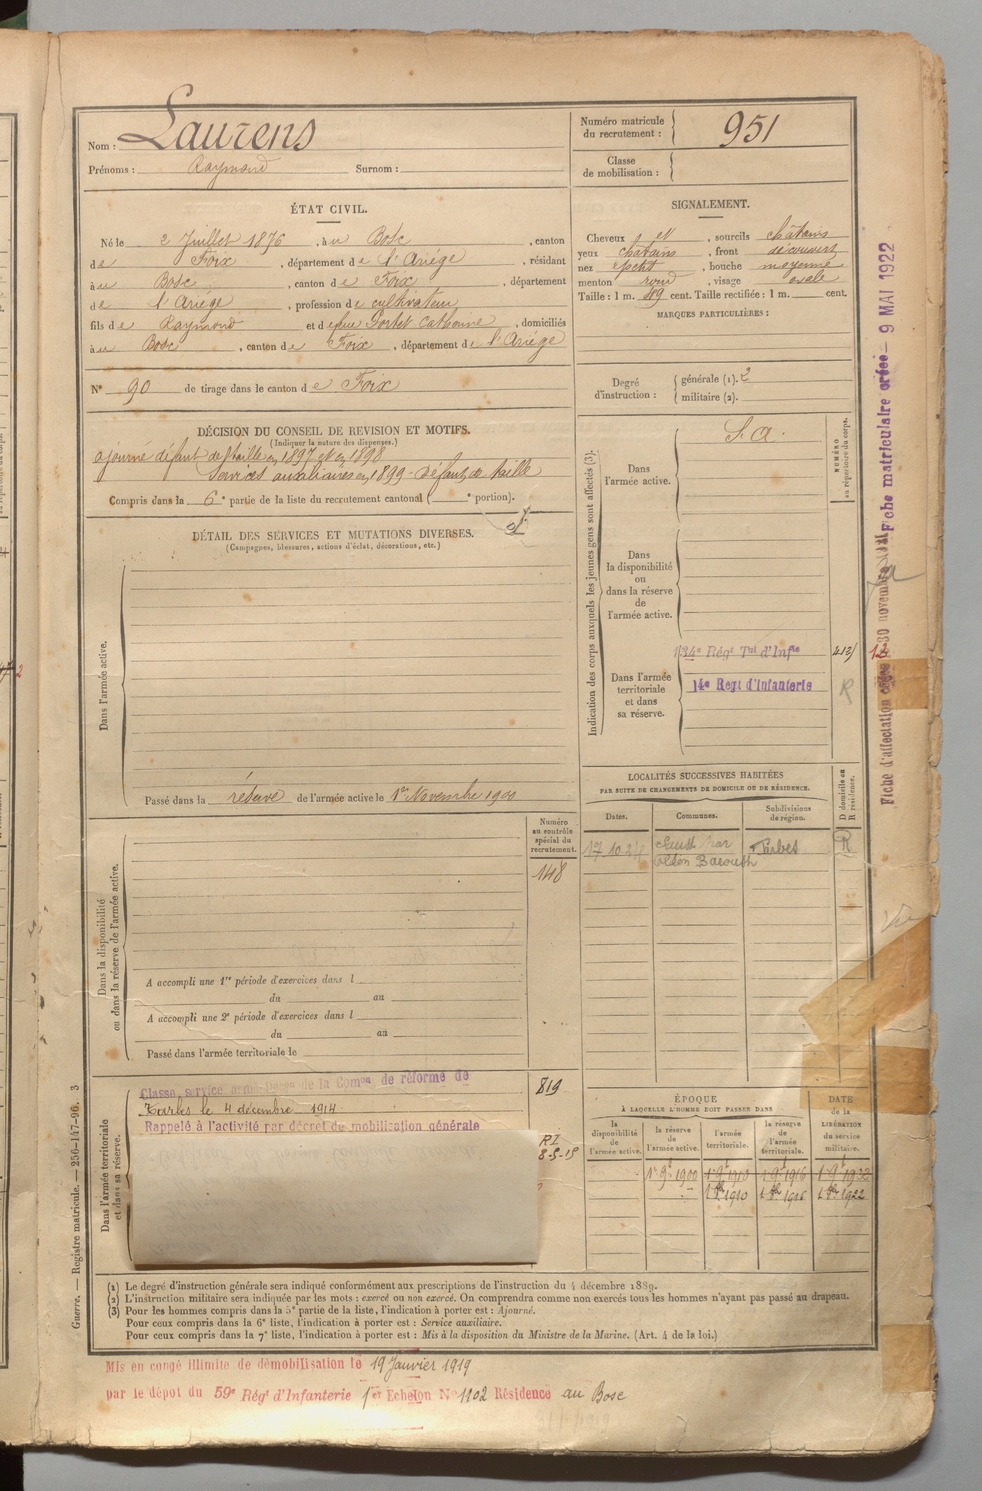 Nom : Laurens
Prénoms : Raymond Surnom :
Numéro matricule du recrutement : 951
Classe de mobilisation :
ÉTAT CIVIL.
Né le 2 Juillet 1876, à u Bosc, canton
de Foix, département de l'Ariége, résidant
à u Bosc, canton de Foix, département
de l'Ariége, profession de cultivateur
fils de Raymond et de feue Portet Catherine, domiciliés
à u Bosc, canton de Foix, département de l'Ariége
N° 90 de tirage dans le canton de Foix
SIGNALEMENT.
Cheveux et, sourcils châtains
yeux châtains, front découvert
nez, bouche moyenne
menton rond, visage ovale
Taille : 1 m. cent. Taille rectifiée : 1 m. cent.
MARQUES PARTICULIÈRES :
Degré d'instruction : générale (1). 2
militaire (2).
DÉCISION DU CONSEIL DE REVISION ET MOTIFS.
(Indiquer la nature des dispenses.)
ajourné défaut de taille en 1897 et en 1898
Services auxiliaires en 1899 - défaut de taille
Compris dans la 6e partie de la liste du recrutement cantonal ( e portion).
DÉTAIL DES SERVICES ET MUTATIONS DIVERSES.
(Campagnes, blessures, actions d'éclat, décorations, etc.)
Dans l'armée active.
Passé dans la réserve de l'armée active le 1er Novembre 1900
Indication des corps auxquels les jeunes gens sont affectés (3).
NUMÉRO au répertoire du corps.
Dans l'armée active.
S. A.
Dans la disponibilité ou dans la réserve de l'armée active.
Dans l'armée territoriale et dans sa réserve.
134e Régt Tal d'Infie
14e Regt d'Infanterie
R
Numéro au contrôle spécial du recrutement.
148
Dans la disponibilité ou dans la réserve de l'armée active.
A accompli une 1re période d'exercices dans l
du au
A accompli une 2e période d'exercices dans l
du au
Passé dans l'armée territoriale le
LOCALITÉS SUCCESSIVES HABITÉES
PAR SUITE DE CHANGEMENTS DE DOMICILE OU DE RÉSIDENCE.
D domicile ou R résidence.
Dates. Communes. Subdivisions de région.
17 10 24 par Tarbes R
Dans l'armée territoriale et dans sa réserve.
Classé service armé de la Comon de réforme de
Tarbes le 4 décembre 1914
Rappelé à l'activité par décret de mobilisation générale
819
RI
8-5-15
ÉPOQUE
À LAQUELLE L'HOMME DOIT PASSER DANS
DATE de la LIBÉRATION du service militaire.
la disponibilité de l'armée active. la réserve de l'armée active. l'armée territoriale. la réserve de l'armée territoriale.
1er 9b 1900 1er 9b 1910 1er 9b 1916 1er 9b 1922
1910 1916 1922
(1) Le degré d'instruction générale sera indiqué conformément aux prescriptions de l'instruction du 4 décembre 1889.
(2) L'instruction militaire sera indiquée par les mots : exercé ou non exercé. On comprendra comme non exercés tous les hommes n'ayant pas passé au drapeau.
(3) Pour les hommes compris dans la 5e partie de la liste, l'indication à porter est : Ajourné.
Pour ceux compris dans la 6e liste, l'indication à porter est : Service auxiliaire.
Pour ceux compris dans la 7e liste, l'indication à porter est : Mis à la disposition du Ministre de la Marine. (Art. 4 de la loi.)
Guerre. — Registre matricule. — 256-147-96. 3
Mis en congé illimité de démobilisation le 19 Janvier 1919
par le dépot du 59e Régt d'Infanterie 1er Echelon N° 1102 Résidence au Bosc
Fiche matriculaire créée - 9 MAI 1922
Fiche d'affectation créée 30 novembre